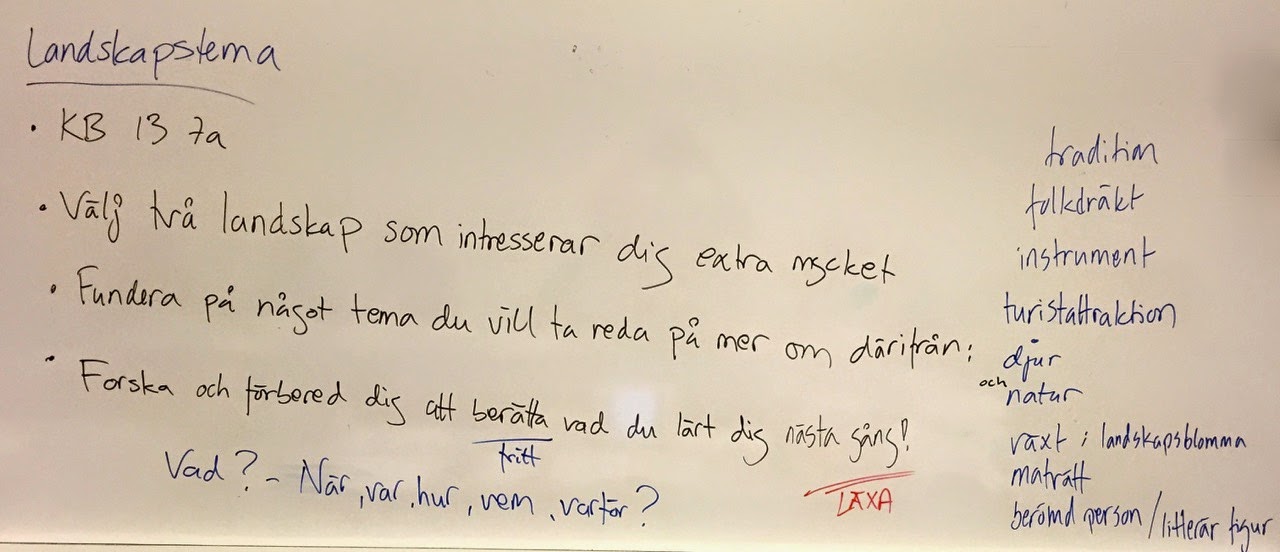 Landskapstema
• KB 13 7a
• Välj två landskap som intresserar dig extra mycket
• Fundera på något tema du vill ta reda på mer om därifrån:
• Forska och förbered dig att berätta vad du lärt dig nästa gång!
fritt
Vad? - När, var, hur, vem, varför?
LÄXA
tradition
folkdräkt
instrument
turistattraktion
djur
och natur
växt : landskapsblomma
maträtt
berömd person / litterär figur